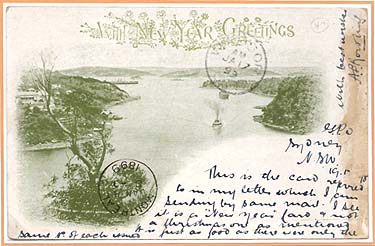 With New Year Greetings
with best wishes
GPO
Sydney
NSW
This is the card referred
to in my letter which I am
sending by same mail. I see
it is a New Year card & not
a Christmas one as mentioned
It is just as good as there were only the
same No. of each issued